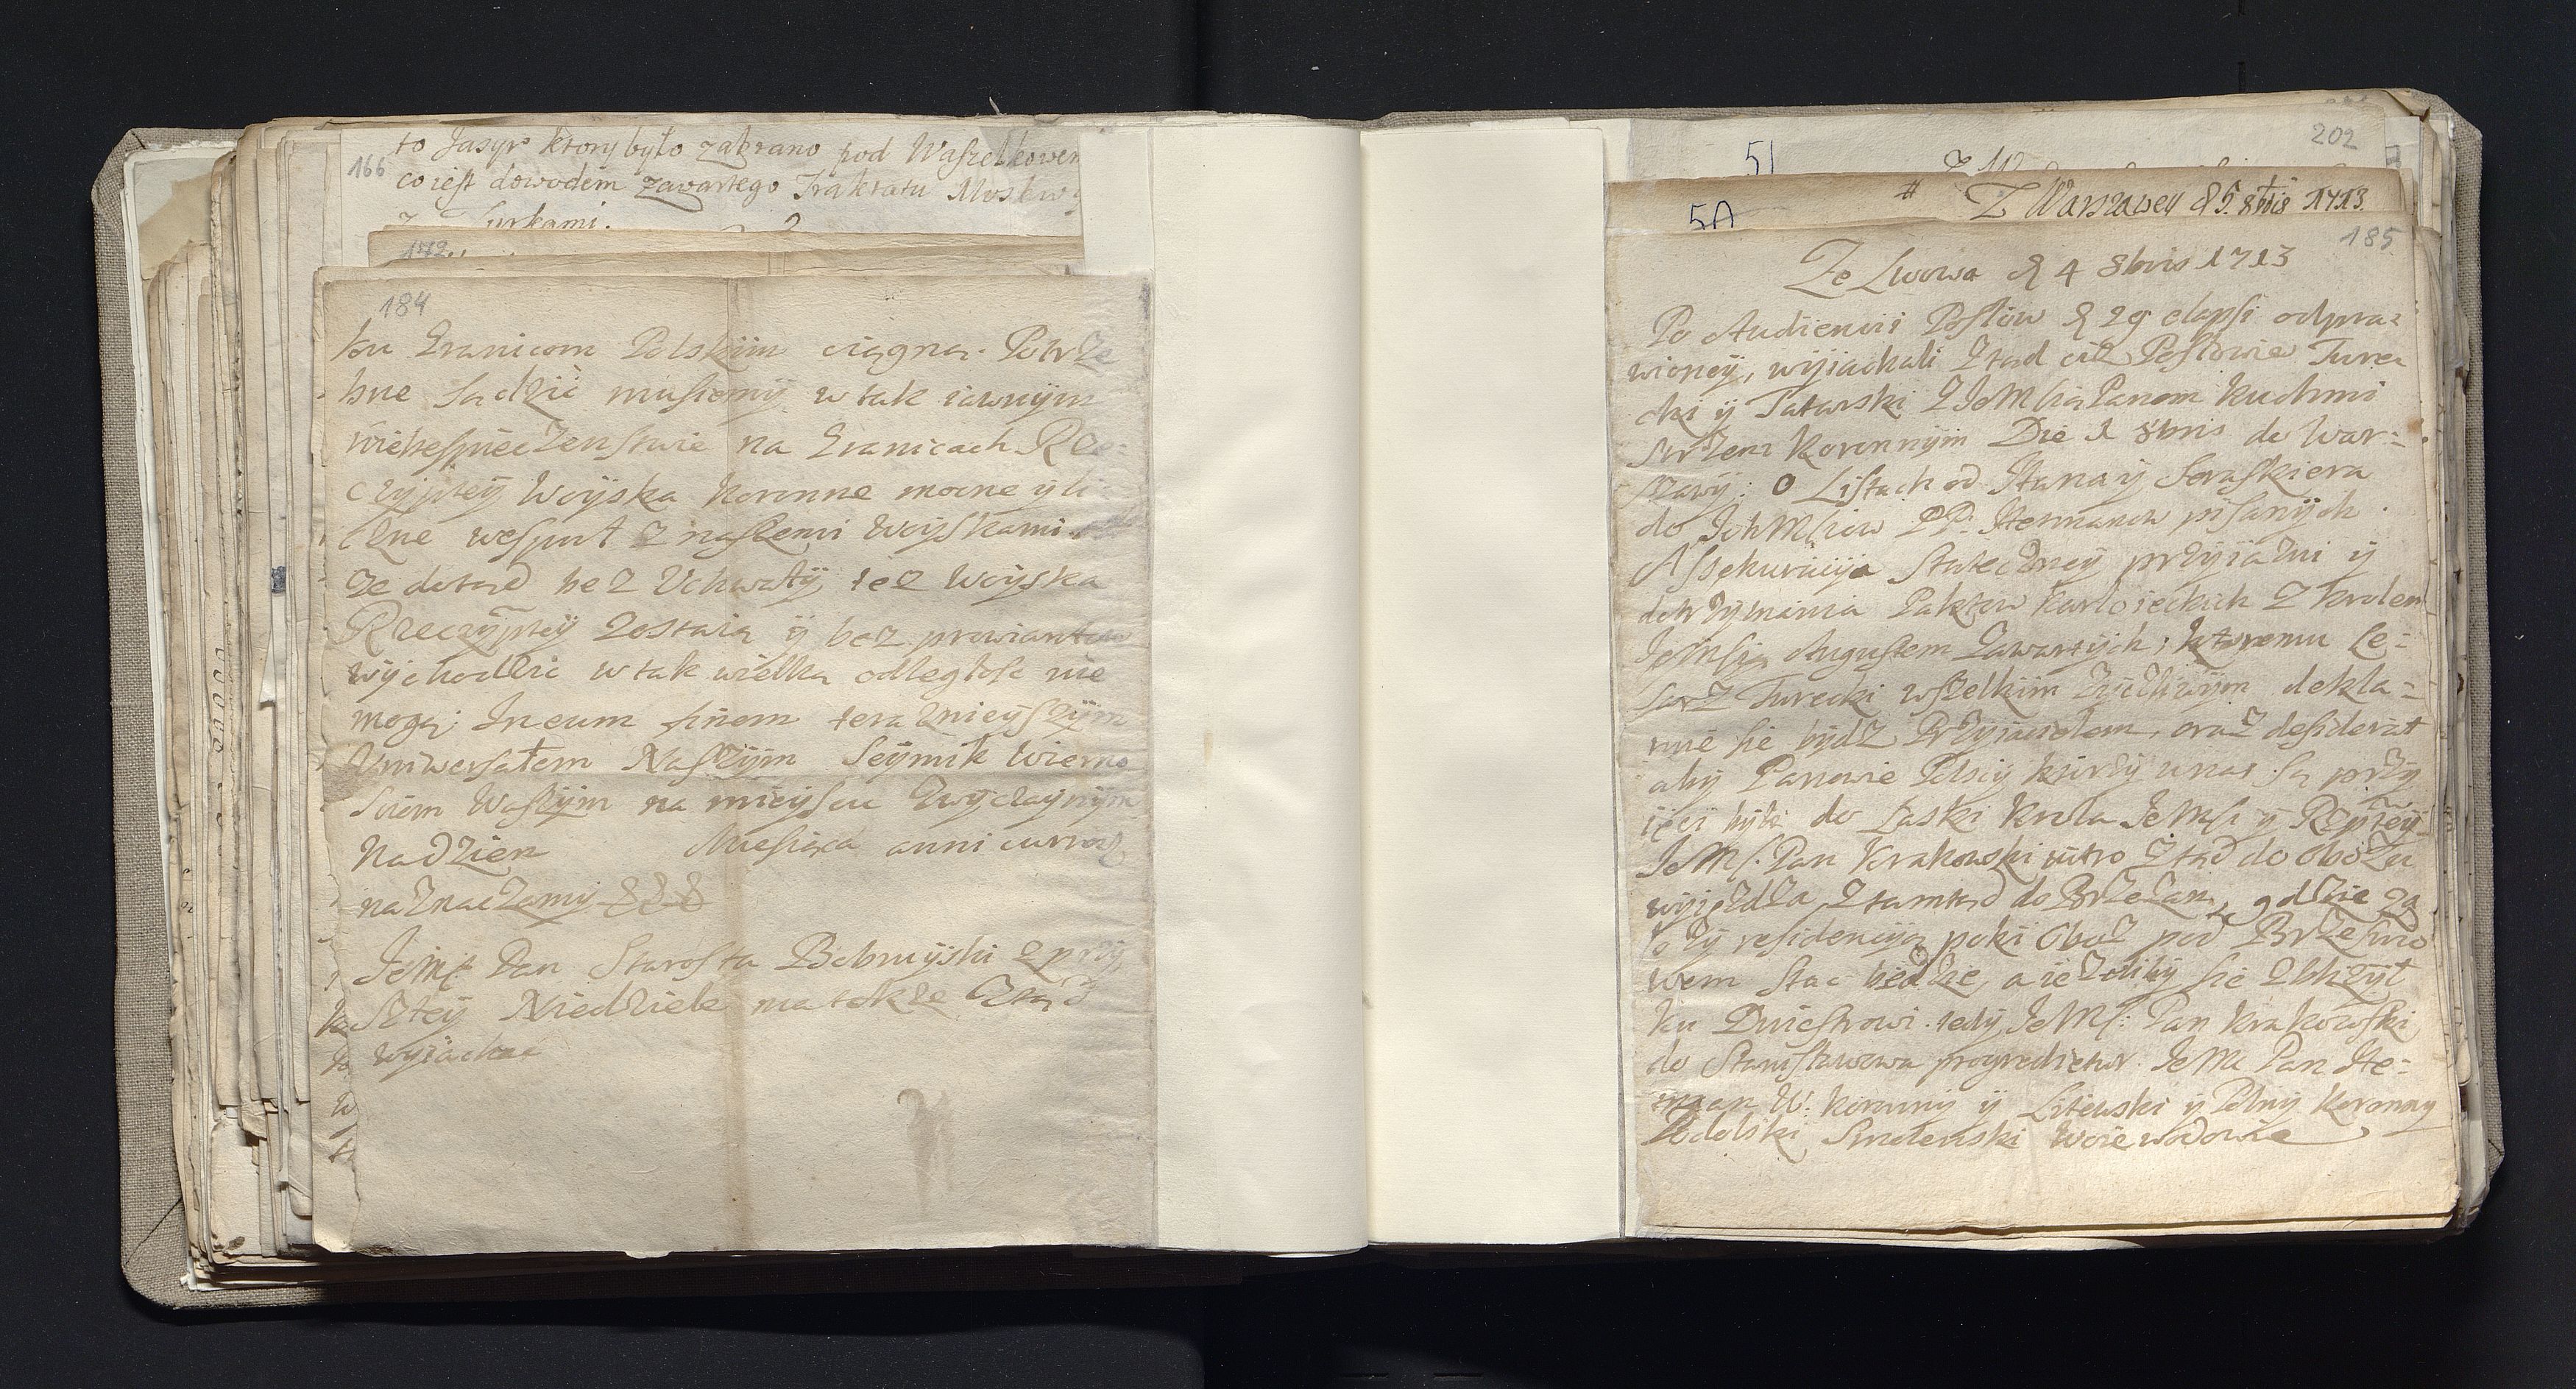 166
to Jasyr ktory było zabrano pod Waszelkowem
co iest dowodem zawartego Traktatu Moskwy
z Turkami.
172
184
ku Granicom Polskim ciągną. Potrze
bne sądzić musiemy w tak iawnym
niebespieczenstwie na Granicach Rze-
czypltey Woyska koronne mocne y li-
czne wespuł z naszemi Woyskami.
ze dotąd bez Uchwały, tez Woyska
Rzeczypltey zostaią y bez prowiantow
wychodzic w tak wielką odległość nie
mogą; In eum finem teraznieyszym
Uniwersałem Naszym Seymik Wierno
Sciom Waszym na mieyscu zwyczaynym
Na dzien Miesiąca anni curren
naznaczamy
JeMć Pan Starosta Bobruyski z przy
szłey Niedziele ma także ztąd
wyiachać
51
202
5A
# Z Warszawy d 5 8bris 1713
185
Ze Lwowa d 4 8bris 1713
Po Audiencii Posłow d 29 elapsi odpra-
wioney, wyiachali ztąd ciż Posłowie Ture-
cki y Tatarski z JeMścią Panem kuchmi
strzem koronnym Die 1 8bris do War-
szawy: O Listach od Hana y Seraskiera
do IchMściow PP. Hetmanow pisanych.
Assekuruiią stateczney przyiazni y
dotrzymania Paktow karłowieckich z krolem
JeMścią Augustem zawartych; ktoremu Ce-
sarz Turecki wszelkim zyczliwym dekla-
ruie sie bydz Przyiacielem, oraz desiderat
aby Panowie Polscy ktorzy u nas są przy
ięci byli do Łaski krola JeMści y Rzptey
JeMść Pan krakowski iutro ztąd do obozu
wyieżdza ztamtąd do Brzezan, gdzie za
łozy residencyą poki Oboz pod Brzesciо
wem stac będzie, a iezeliby sie zblizył
ku Dniestrowi. tedy JeMść Pan krakowski
do Stanisławowa progredietur. JeMć Pan He-
tman W. koronny y Litewski y Polny koronny
Podolski Smolenski Woiewodowie